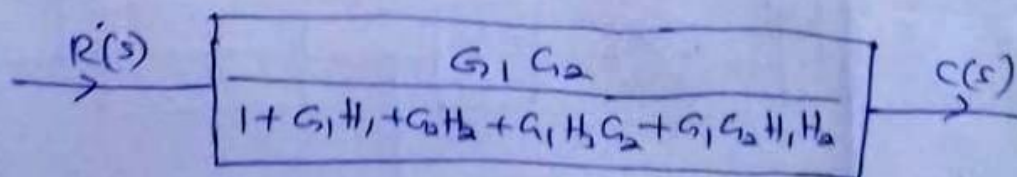 R(s)
G1 G2
C(s)
1 + G1H1 + G2H2 + G1H3G2 + G1G2H1H2